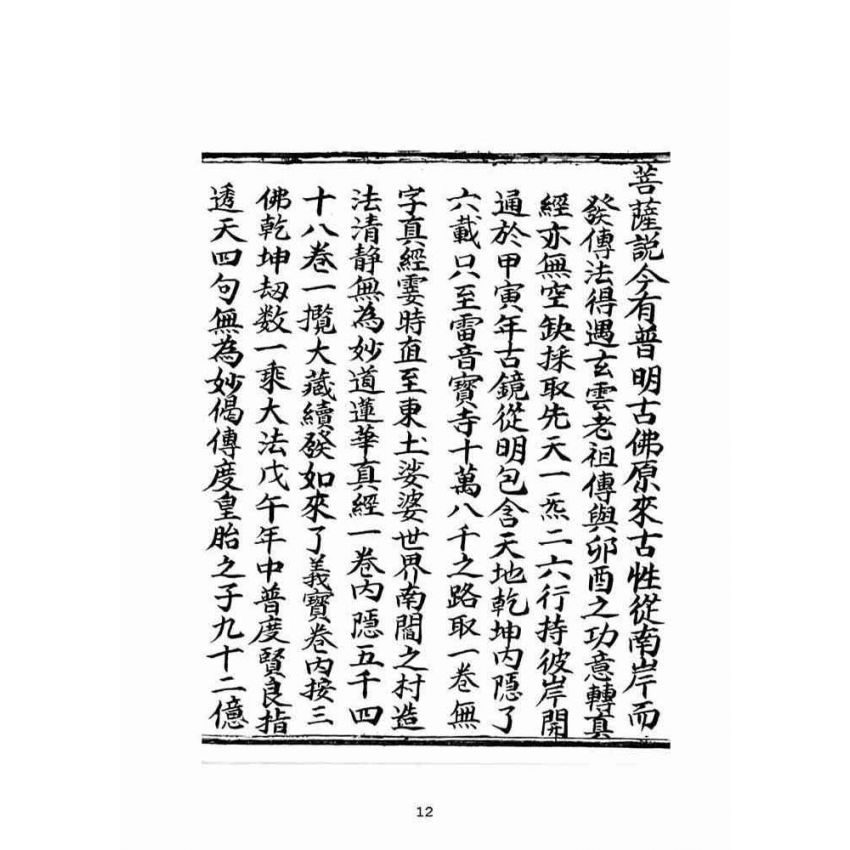 菩薩説今有普明古佛原來古性從南岸而
發傳法得遇玄雲老祖傳與卯酉之功意轉真
經亦無空缺採取先天一炁二六行持彼岸開
通於甲寅年古鏡從明包含天地乾坤内隱了
六載只至雷音寶寺十萬八千之路取一卷無
字真經霎時直至東土娑婆世界南閻之村造
法清静無為妙道蓮華真經一卷内隱五千四
十八卷一攬大藏續發如來了義寶卷内按三
佛乾坤刼数一乘大法戊午年中普度賢良指
透天四句無為妙偈傳度皇胎之子九十二億
12